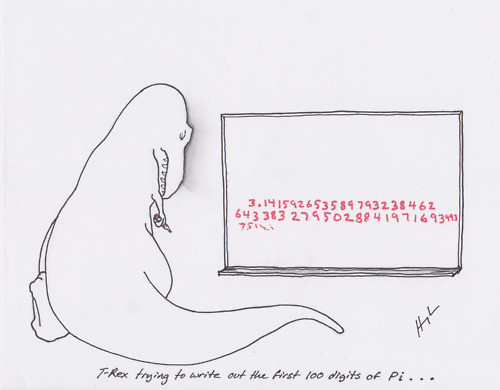 3.141592653589793238462
643383 2795028841971693993
T-Rex trying to write out the first 100 digits of Pi...